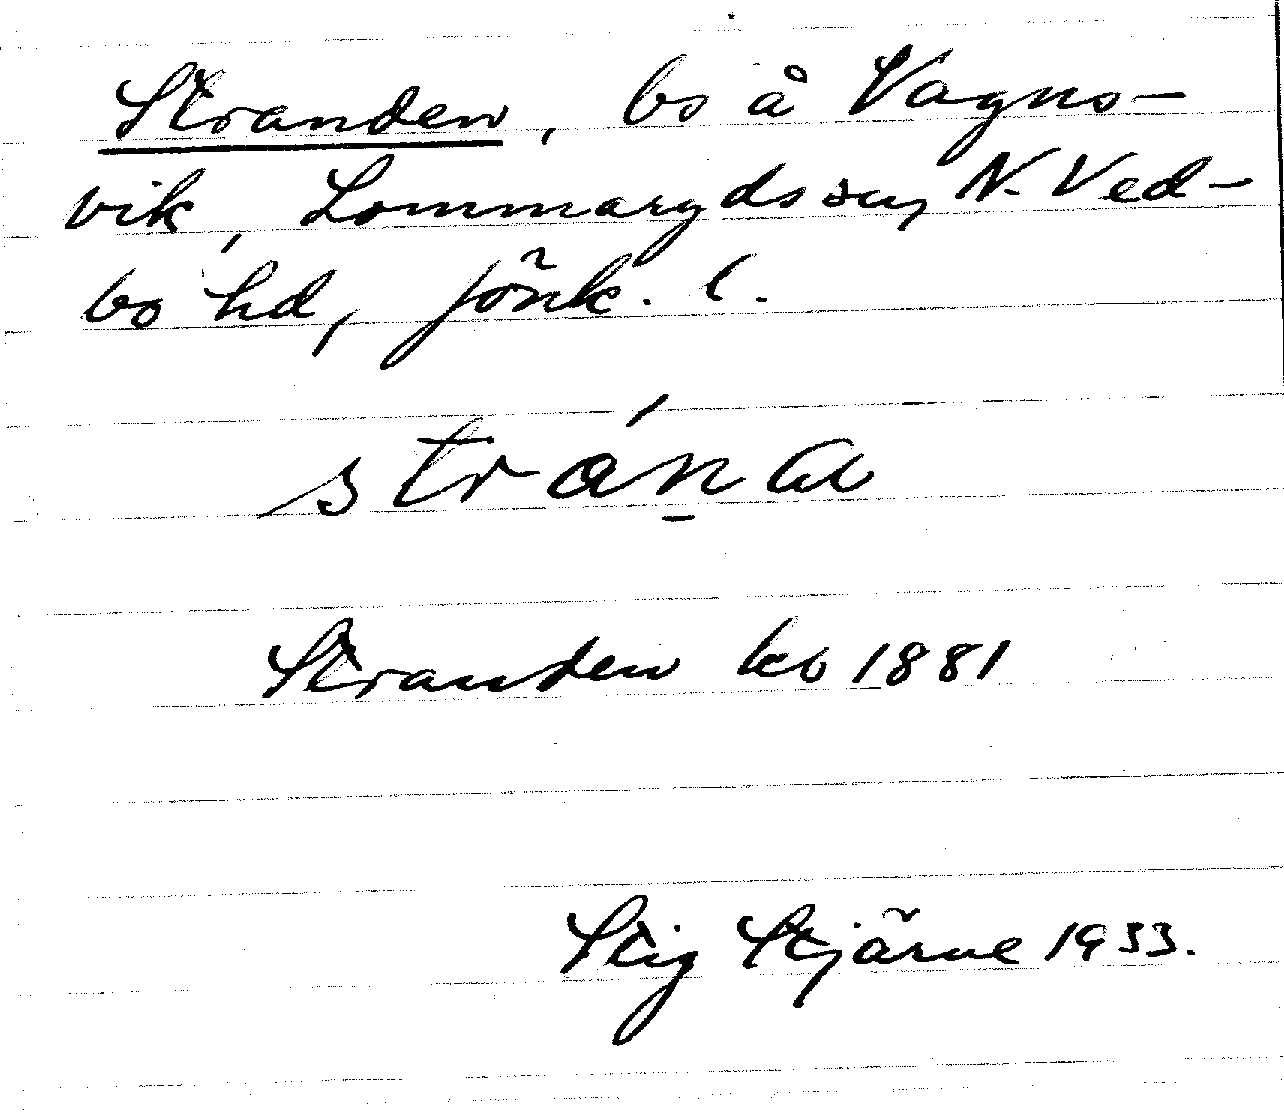 Stranden, bs å Vagns-
vik, Lommaryds sn, N. Ved-
bo hd, Jönk. l.
stránα
Stranden kb 1881
Stig Stjärne 1933.